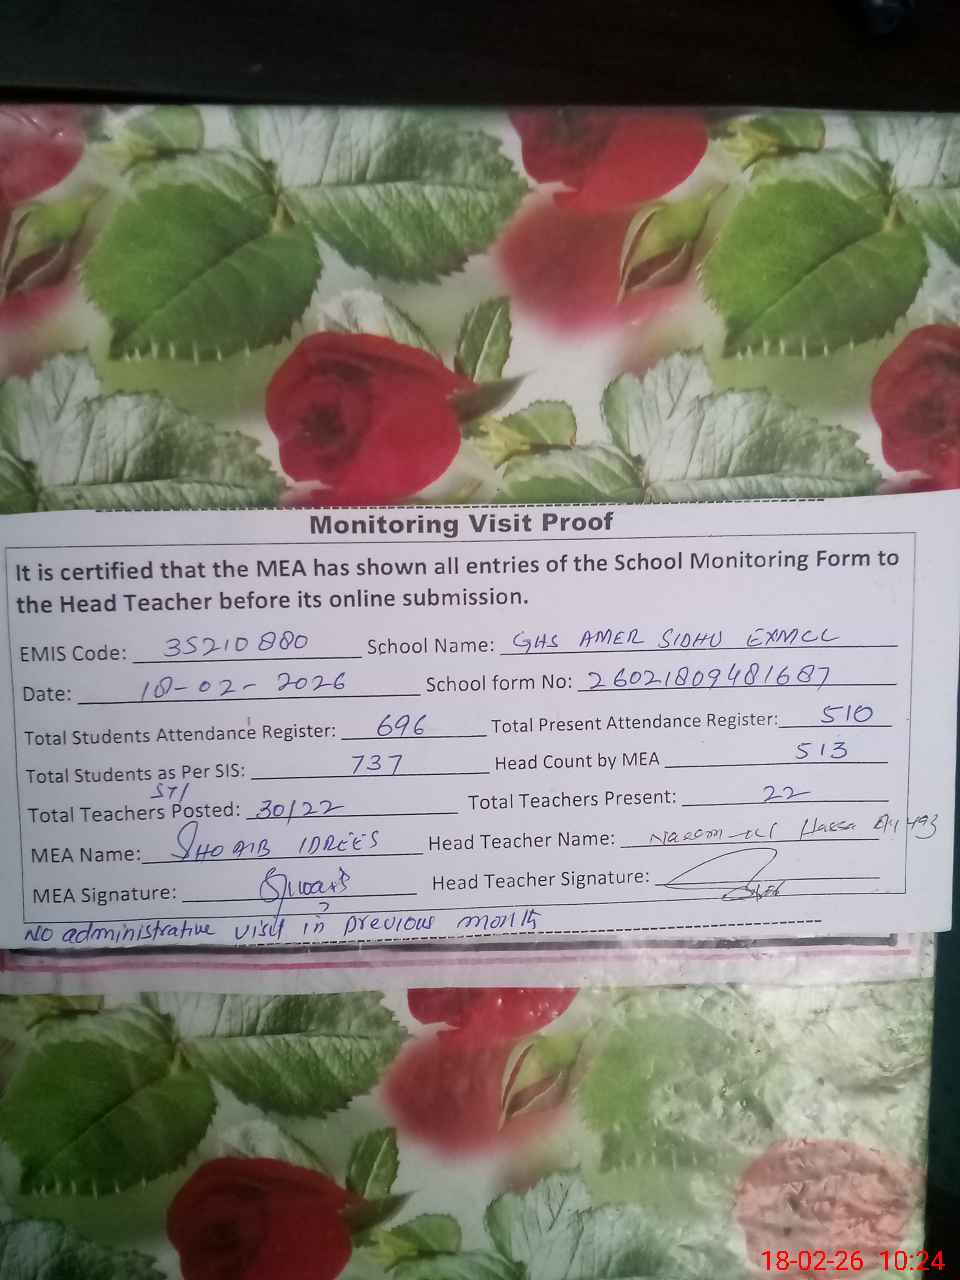 Monitoring Visit Proof
It is certified that the MEA has shown all entries of the School Monitoring Form to
the Head Teacher before its online submission.
EMIS Code: 35210880 School Name: GHS AMER SIDHU EXMCL
Date: 18-02-2026 School form No: 26021809481687
Total Students Attendance Register: 696 Total Present Attendance Register: 510
Total Students as Per SIS: 737 Head Count by MEA 513
STI
Total Teachers Posted: 30/22 Total Teachers Present: 22
MEA Name: SHOAIB IDREES Head Teacher Name:
MEA Signature: Head Teacher Signature:
NO administrative visit in previous month
18-02-26 10:24